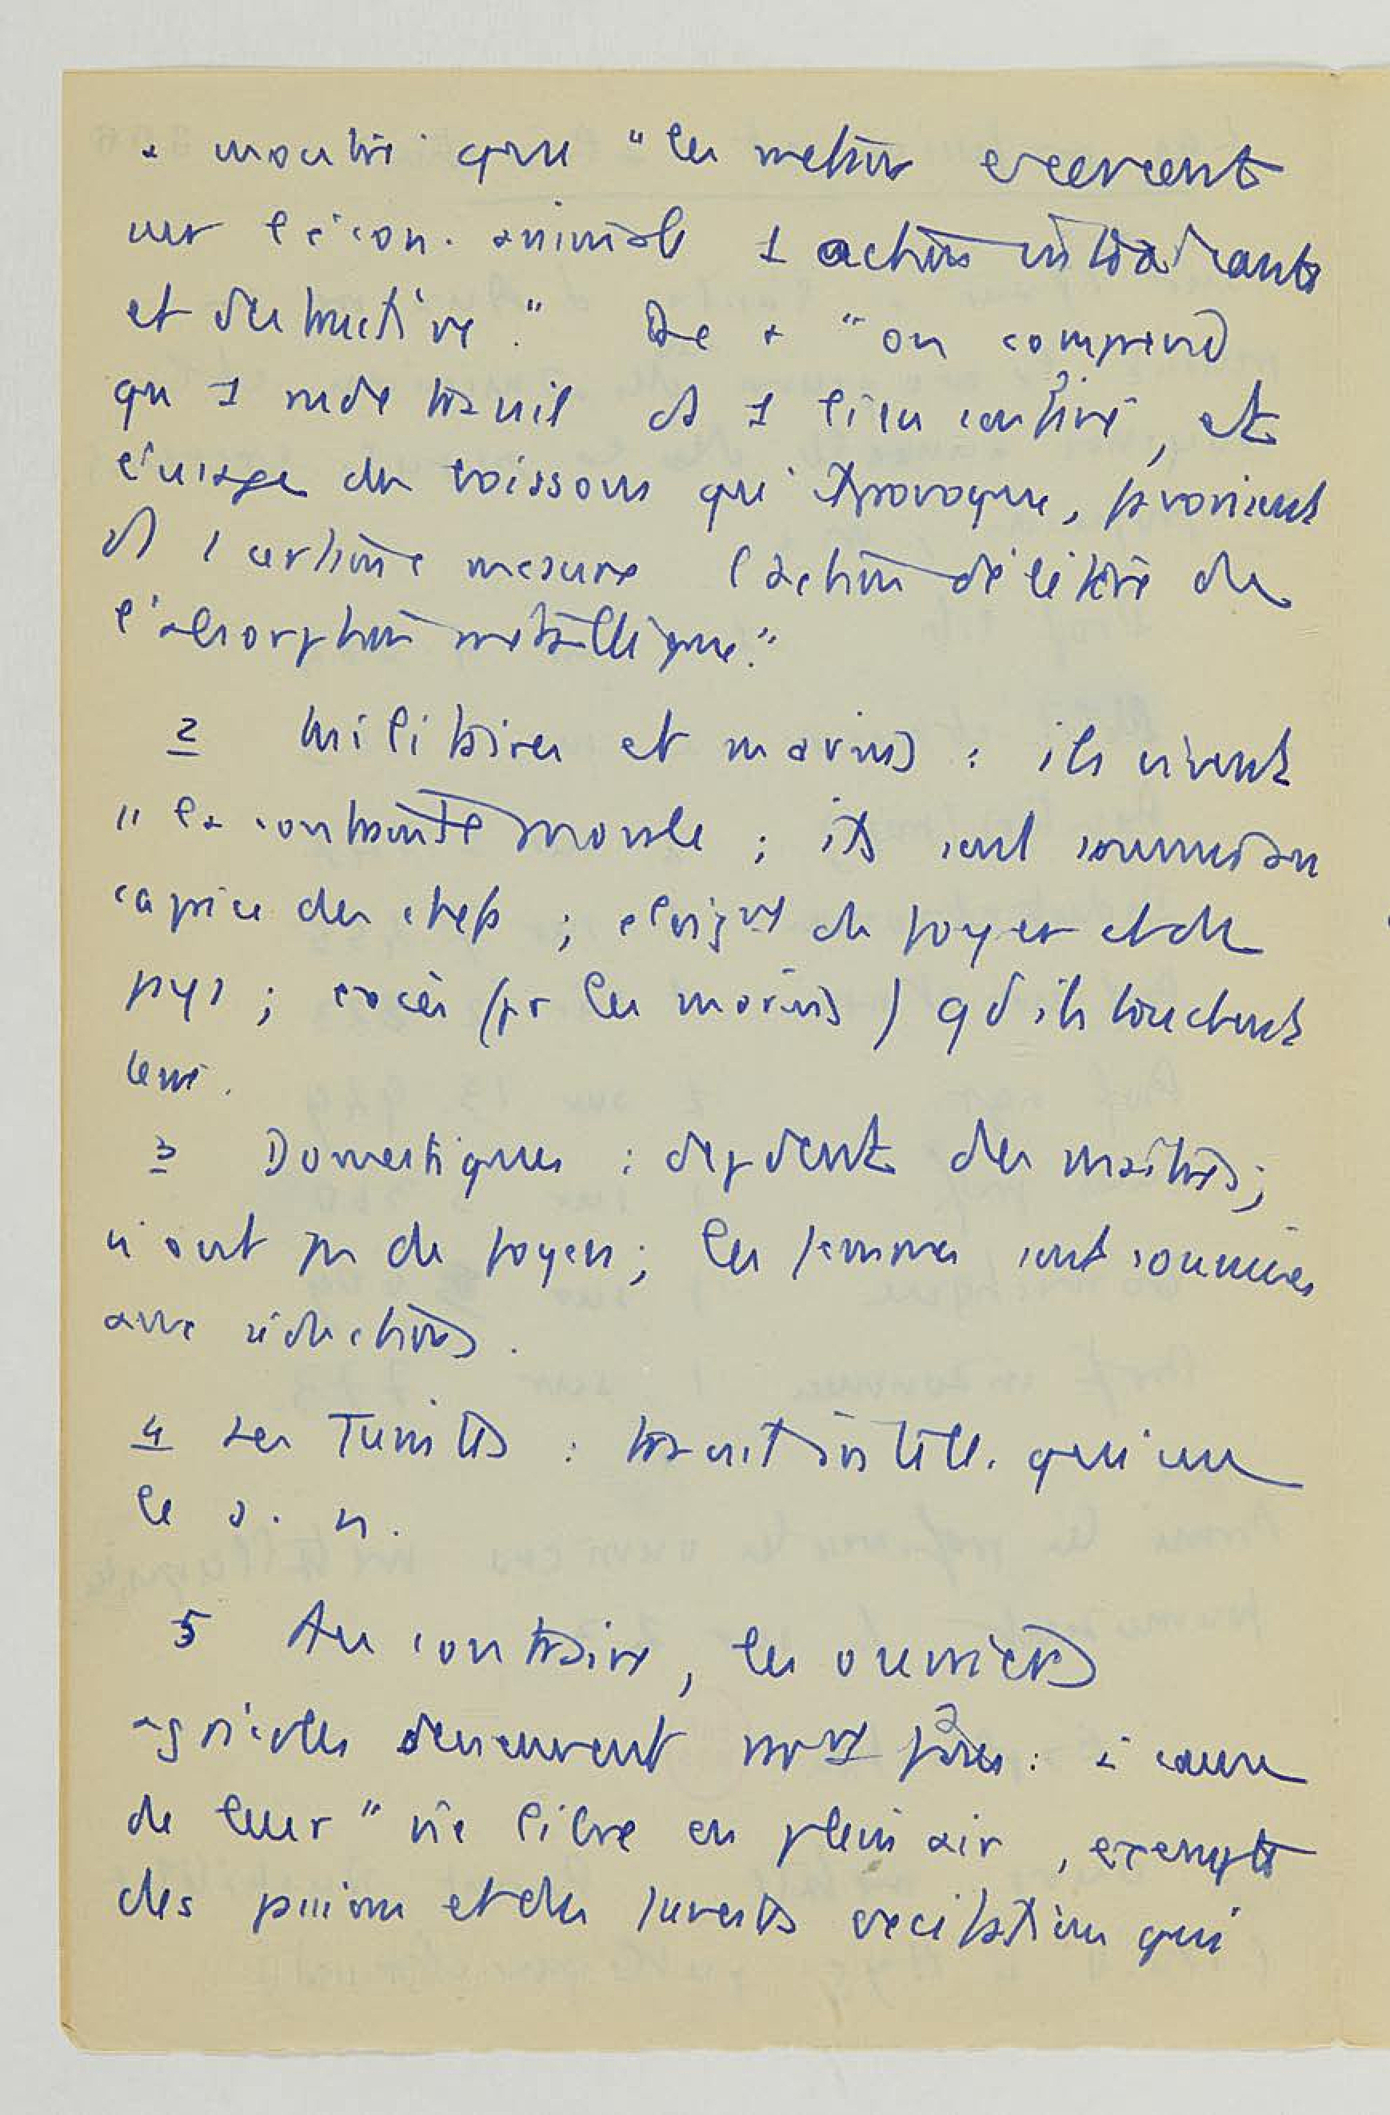 a montré que "les métaux exercent
sur l'écon. animale 1 action
et destructive." De + "on comprend
qu'1 rude travail ds 1 lieu confiné, et
l'usage des boissons qu'il provoque,
ds 1 certaine mesure l'action délétère de
l'absorption métallique."
2 Militaires et marins : ils vivent
"la contrainte morale ; ils sont soumis au
caprice des chefs ; éloignt du foyer et du
pays ; excès (pr les marins) qd ils touchent
terre.
3 Domestiques : dépdent des maîtres ;
n'ont pas de foyers ; les femmes sont soumises
aux séductions.
4 Les : travail intell. qui use
le s. n.
5 Au contraire, les ouvriers
agricoles demeurent : à cause
de leur "vie libre en plein air, exempte
des passions et des excitations qui